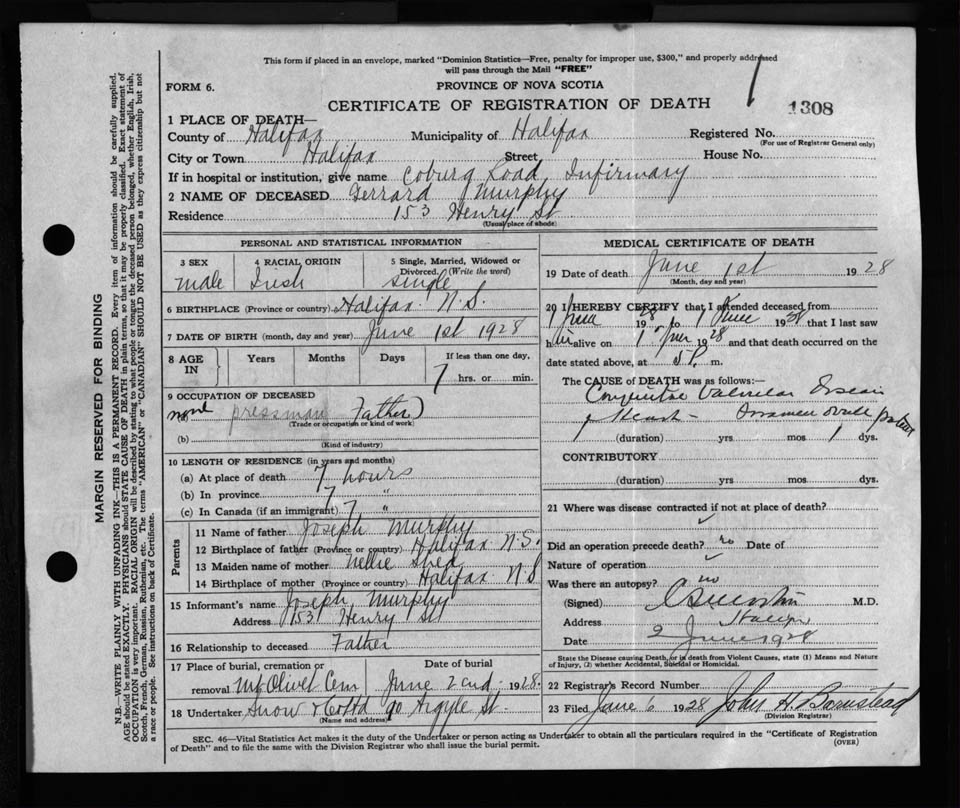 This form if placed in an envelope, marked "Dominion Statistics—Free, penalty for improper use, $300," and properly addressed
will pass through the Mail "FREE"
FORM 6.
PROVINCE OF NOVA SCOTIA
CERTIFICATE OF REGISTRATION OF DEATH
1308
1 PLACE OF DEATH—
County of Halifax Municipality of Halifax Registered No.
(For use of Registrar General only)
City or Town Halifax Street House No.
If in hospital or institution, give name Coburg Road Infirmary
2 NAME OF DECEASED Gerrard Murphy
Residence 153 Henry St
(Usual place of abode)
PERSONAL AND STATISTICAL INFORMATION
3 SEX 4 RACIAL ORIGIN 5 Single, Married, Widowed or
Divorced. (Write the word)
male Irish single
6 BIRTHPLACE (Province or country) Halifax N.S.
7 DATE OF BIRTH (month, day and year) June 1st 1928
8 AGE IN Years Months Days If less than one day,
7 hrs. or min.
9 OCCUPATION OF DECEASED
(a) none pressman Father)
(Trade or occupation or kind of work)
(b)
(Kind of industry)
10 LENGTH OF RESIDENCE (in years and months)
(a) At place of death 7 hours
(b) In province 7 "
(c) In Canada (if an immigrant) 7 "
Parents
11 Name of father Joseph Murphy
12 Birthplace of father (Province or country) Halifax N.S.
13 Maiden name of mother Nellie Shea
14 Birthplace of mother (Province or country) Halifax N S
15 Informant's name Joseph Murphy
Address 153 Henry St
16 Relationship to deceased Father
17 Place of burial, cremation or Date of burial
removal Mt Olivet Cem June 2nd 1928.
18 Undertaker Snow & Co Ltd 90 Argyle St.
(Name and address)
MEDICAL CERTIFICATE OF DEATH
19 Date of death June 1st 1928
(Month, day and year)
20 I HEREBY CERTIFY that I attended deceased from
1 June 1928 to 1 June 1928 that I last saw
h im alive on 1 June 1928 and that death occurred on the
date stated above, at 5 P. m.
The CAUSE of DEATH was as follows:—
Congenital Valvular Disease
of Heart - Foramen Ovale patent
(duration) yrs mos 1 dys.
CONTRIBUTORY
(duration) yrs. mos. dys.
21 Where was disease contracted if not at place of death?
Did an operation precede death? no Date of
Nature of operation
Was there an autopsy? no
(Signed) M.D.
Address Halifax
Date 2 June 1928
State the Disease causing Death, or in death from Violent Causes, state (1) Means and Nature
of Injury, (2) whether Accidental, Suicidal or Homicidal.
22 Registrar's Record Number
23 Filed June 6 1928 John H. Barnstead
(Division Registrar)
SEC. 46—Vital Statistics Act makes it the duty of the Undertaker or person acting as Undertaker to obtain all the particulars required in the "Certificate of Registration
of Death" and to file the same with the Division Registrar who shall issue the burial permit.
(OVER)
MARGIN RESERVED FOR BINDING
N.B.—WRITE PLAINLY WITH UNFADING INK—THIS IS A PERMANENT RECORD. Every item of information should be carefully supplied.
AGE should be stated EXACTLY. PHYSICIANS should STATE CAUSE OF DEATH in plain terms, so that it may be properly classified. Exact statement of
OCCUPATION is very important. RACIAL ORIGIN will be described by stating to what people or tongue the deceased person belonged, whether English, Irish,
Scotch, French, German, Russian, Ruthenian, etc. The terms "AMERICAN" or "CANADIAN" SHOULD NOT BE USED as they express citizenship but not
a race or people. See instructions on back of Certificate.